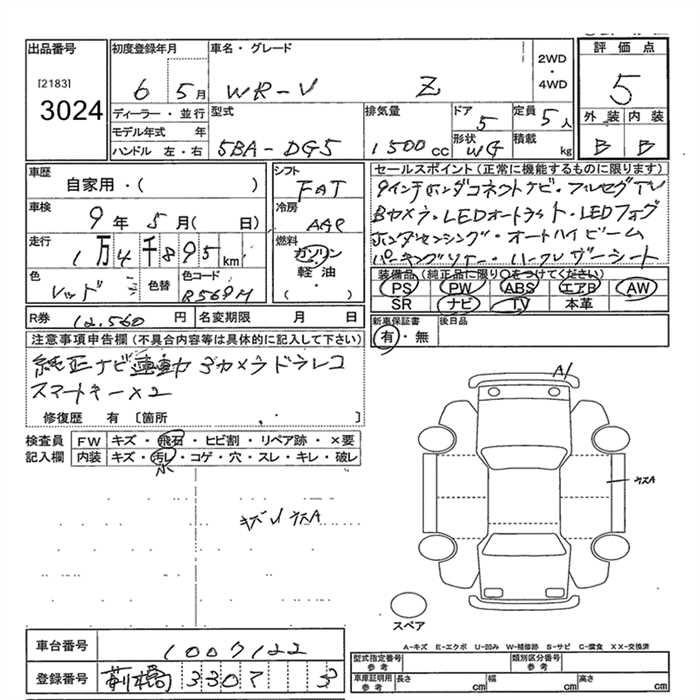 出品番号
[2183]
3024
初度登録年月
6 5月
ディーラー・並行
モデル年式 年
ハンドル 左・右
車名・グレード
WR-V Z
2WD
・
4WD
型式
5BA-DG5
排気量
1500cc
ドア
5
形状
WG
定員
5人
積載
kg
評価点
5
外装 内装
B B
車歴
自家用・( )
車検
9年 5月( 日)
走行
1万4千895km
色
レッド
色替
色コード
R569M
シフト
FAT
冷房
AAC
燃料
ガソリン
軽・油
・( )
セールスポイント(正常に機能するものに限ります)
9インチホンダコネクトナビ・フルセグTV
Bカメラ・LEDオートライト・LEDフォグ
ホンダセンシング・オートハイビーム
パーキングセンサー・ハーフレザーシート
装備品(純正品に限り○をつけてください)
PS PW ABS エアB AW
SR ナビ TV 本革
新車保証書
有・無
後日品
R券 12,560円
名変期限 月 日
注意事項申告欄(不具合内容等は具体的に記入して下さい)
純正ナビ連動 3カメラドラレコ
スマートキー×2
修復歴 有 [箇所 ]
検査員
記入欄
FW キズ・飛石・ヒビ割・リペア跡・×要
内装 キズ・汚レ・コゲ・穴・スレ・キレ・破レ
小
キズ ウスA
A1
ウスA
スペア
A-キズ E-エクボ U-凹み W-補修跡 S-サビ C-腐食 XX-交換済
車台番号 1007122
登録番号 前橋 330 3
型式指定番号
参考
類別区分番号
参考
車庫証明用
参考
長さ cm
幅 cm
高さ cm